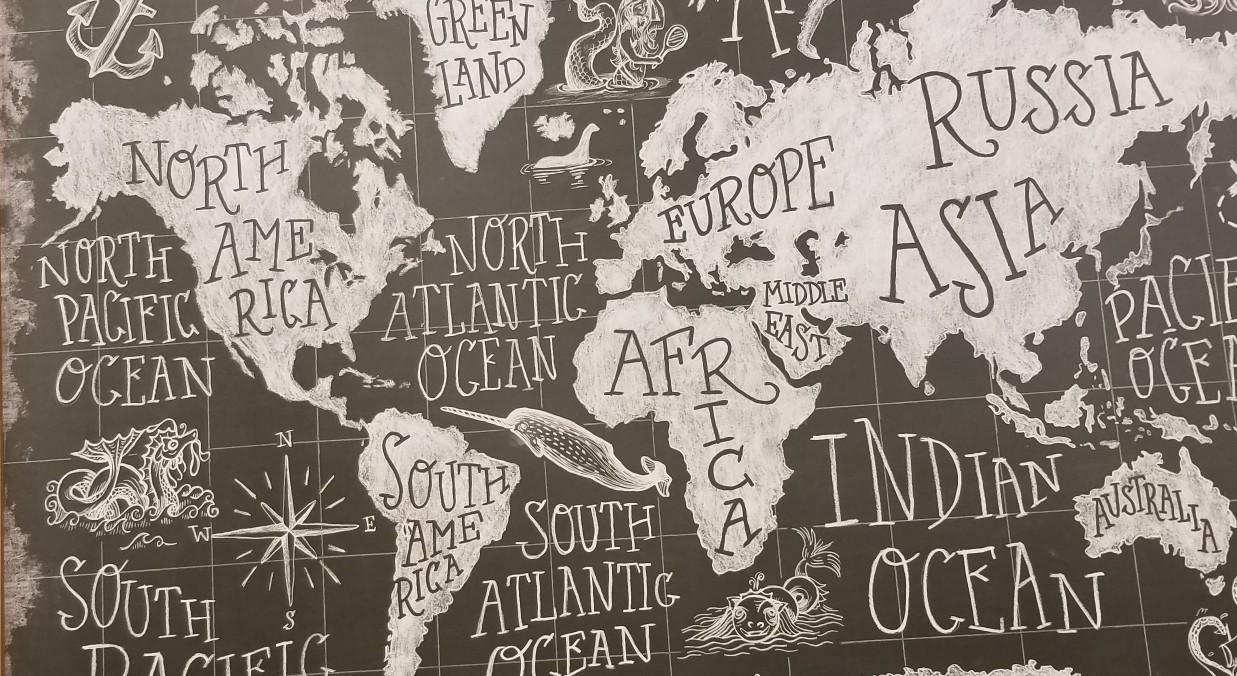 GREEN
LAND
RUSSIA
NORTH
AME
RICA
EUROPE
ASIA
NORTH
PACIFIC
OCEAN
NORTH
ATLANTIC
OCEAN
MIDDLE
EAST
PACIFI
OCEA
AFR
I
C
A
N
W
E
S
SOUTH
AME
RICA
INDIAN
OCEAN
AUSTRALIA
SOUTH
ATLANTIC
OCEAN
SOUTH
PACIFIC